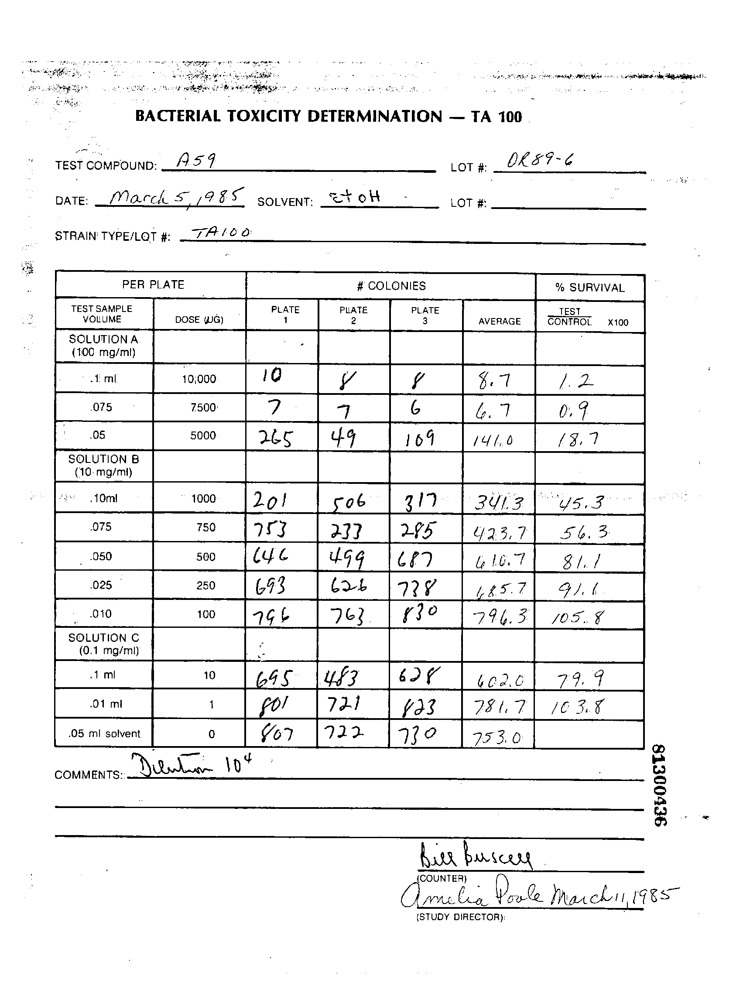 BACTERIAL TOXICITY DETERMINATION — TA 100
TEST COMPOUND: A59 LOT #: OR89-6
DATE: March 5, 1985 SOLVENT: EtOH LOT #:
STRAIN TYPE/LOT #: TA100
PER PLATE # COLONIES % SURVIVAL
TEST SAMPLE VOLUME DOSE (µG) PLATE 1 PLATE 2 PLATE 3 AVERAGE TEST CONTROL X100
SOLUTION A (100 mg/ml)
.1 ml 10,000 10 8 8 8.7 1.2
.075 7500 7 7 6 6.7 0.9
.05 5000 265 49 109 141.0 18.7
SOLUTION B (10 mg/ml)
.10ml 1000 201 506 317 341.3 45.3
.075 750 753 233 285 423.7 56.3
.050 500 646 499 687 610.7 81.1
.025 250 693 626 738 685.7 91.1
.010 100 796 763 830 796.3 105.8
SOLUTION C (0.1 mg/ml)
.1 ml 10 695 483 628 602.0 79.9
.01 ml 1 801 721 823 781.7 103.8
.05 ml solvent 0 807 722 730 753.0
COMMENTS: Dilution 10⁴
81300436
Bill
(COUNTER)
Amelia Poole March 11, 1985
(STUDY DIRECTOR):